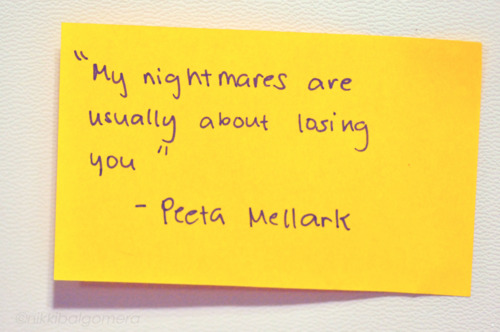 "My nightmares are
usually about losing
you"
- Peeta Mellark
@nikkibalgomera